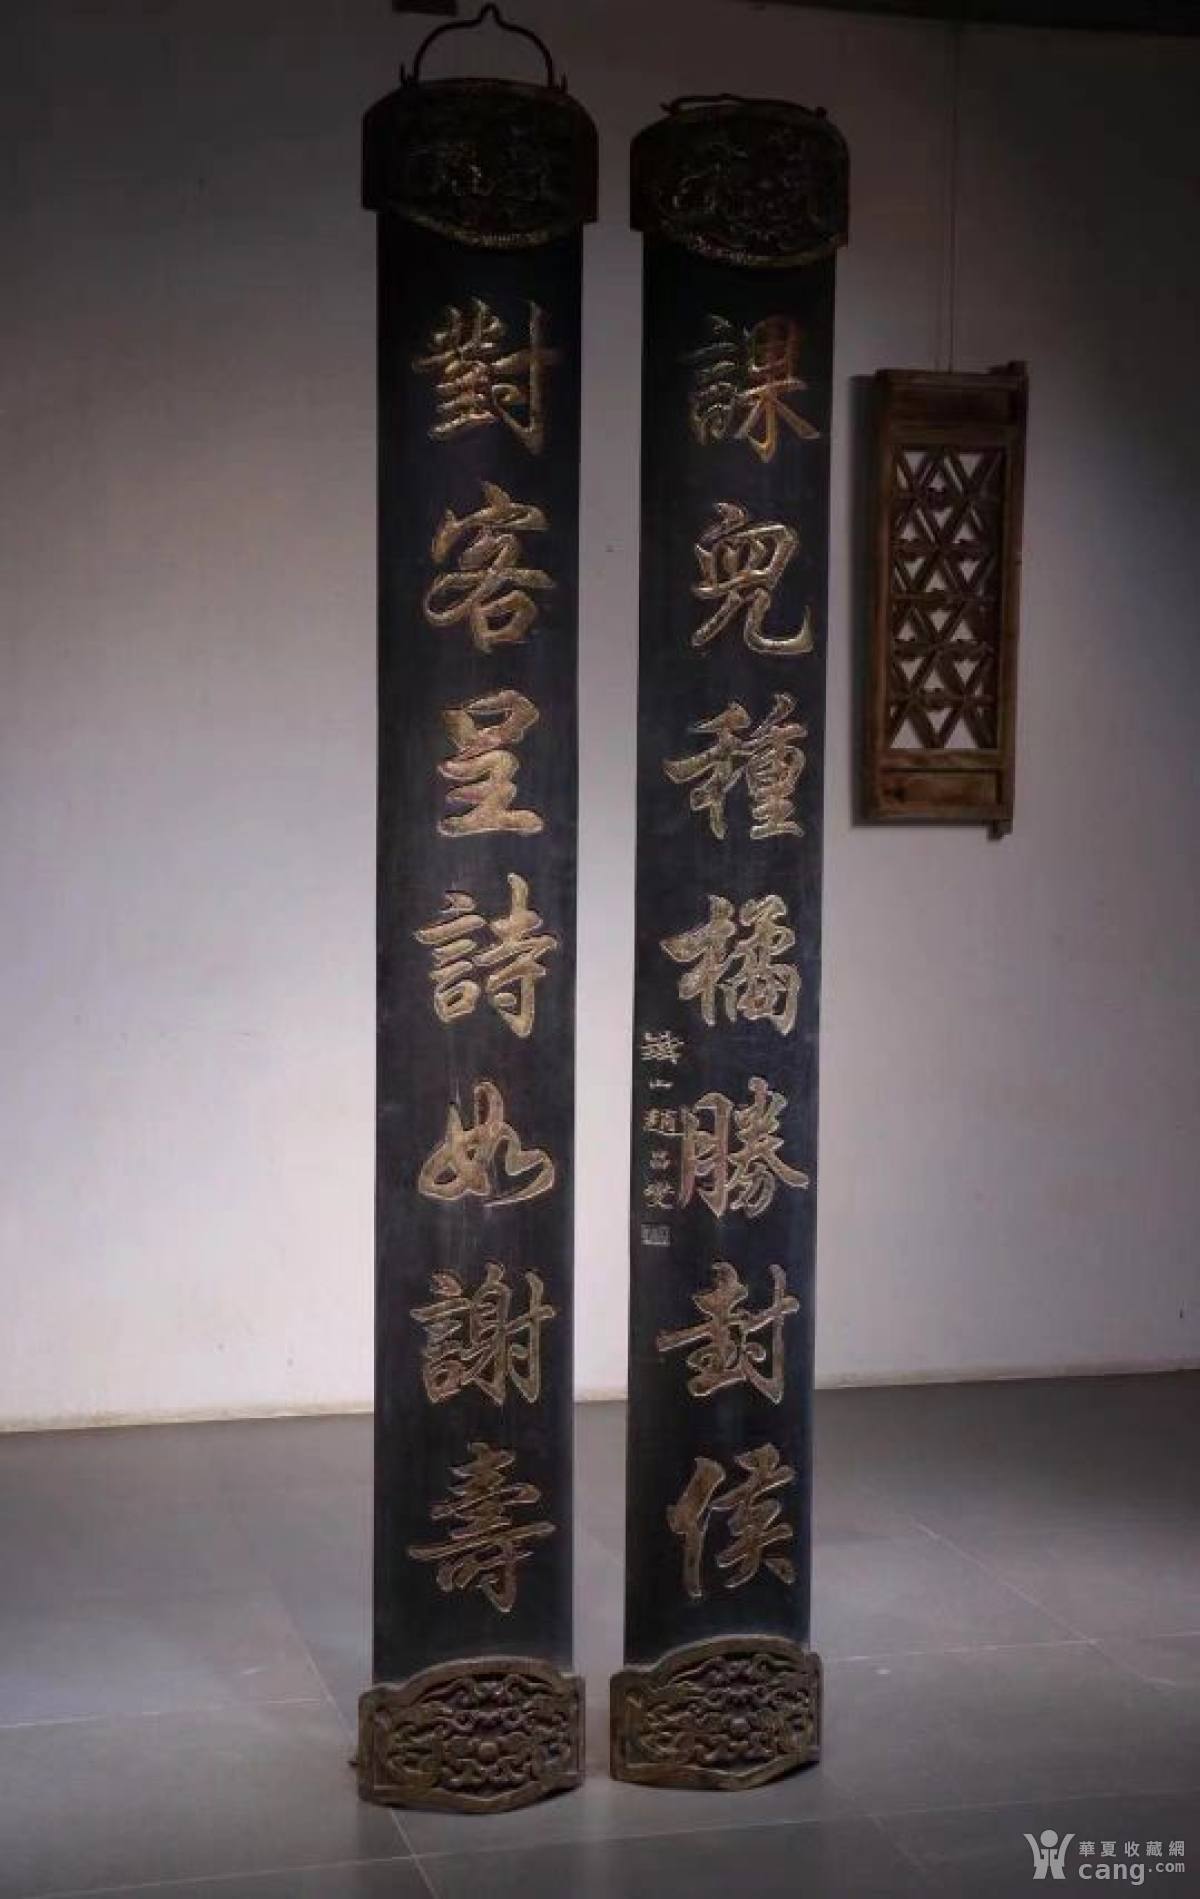 課兒種橘勝封侯
對客呈詩如謝壽
鐵山趙昌燮
華夏收藏網
cang.com